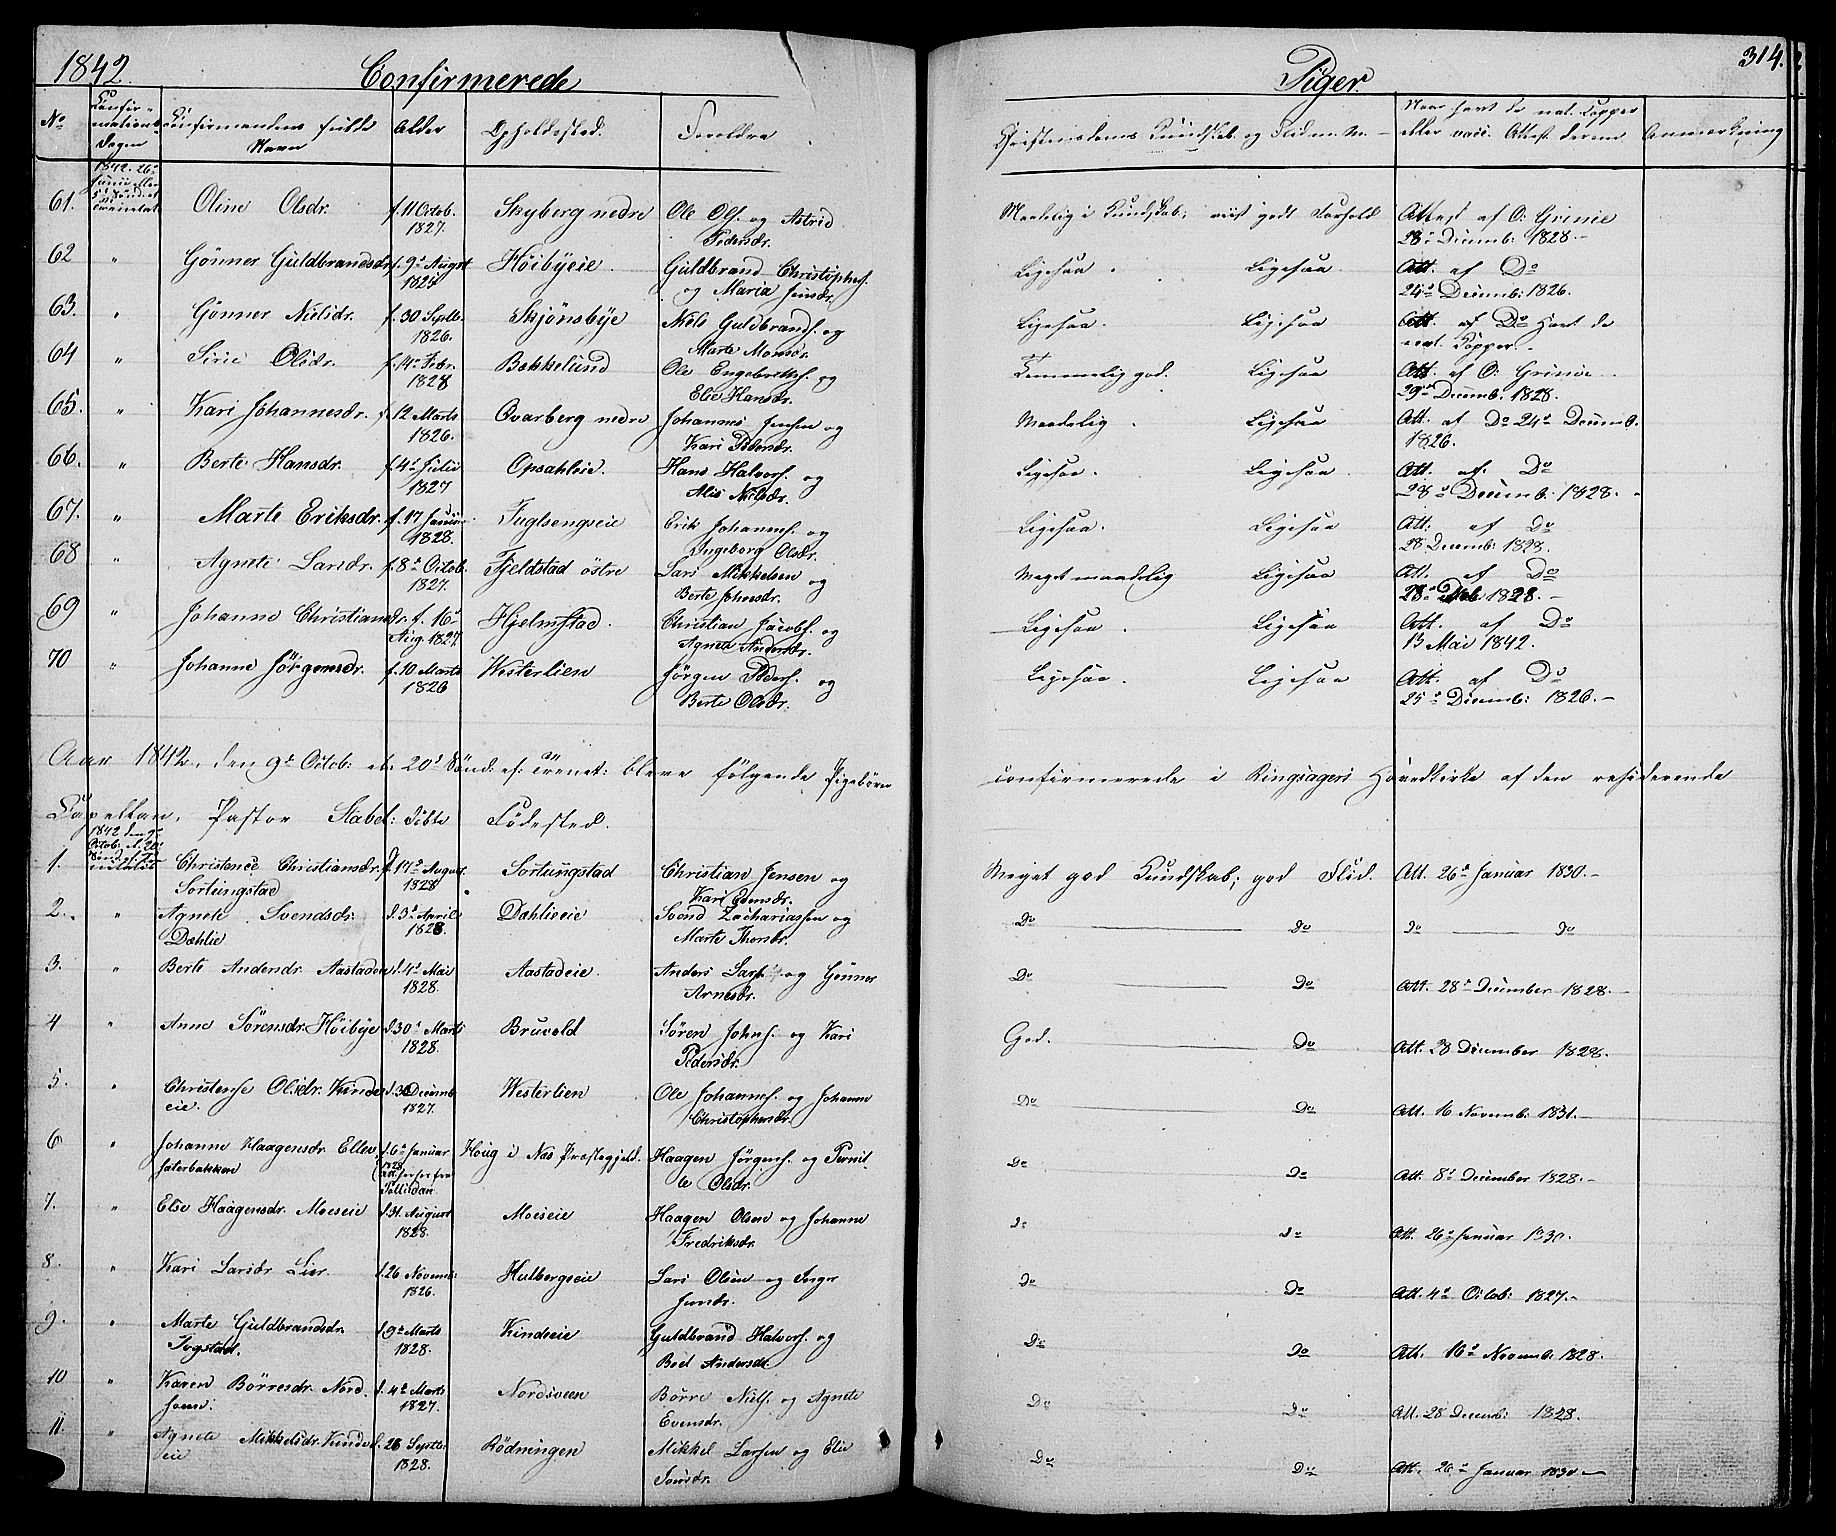 1842. Confirmerede Piger. 314.
No Confirmations Dagen Confirmandens fulde Navn Alder Opholdssted. Forældre Christendoms Kundskab og Flid m.v. Naar havt de nat. Kopper eller vacc. Attest derom Anmærkning
1842. 26de Junii eller 5te Sønd. ef. Trinitatis
61. Oline Olsdr. f. 11 Octob. 1827. Skyberg nedre Ole Ols. og Astrid Pedersdr. Maadelig i Kundskab; viist godt Forhold Attest af O: Grinie 28de Decemb: 1828.-
62 " Gønner Guldbrandsdr. f. 9de Augst 1825 Høibyeie. Guldbrand Christophs. og Maria Jensdr. Ligesaa. Ligesaa. Att. af Do 24de Decemb: 1826.
63. " Gønner Nielsdr. f. 30 Septb. 1826. Skjønsbye Niels Guldbrands. og Marte Monsdr. Ligesaa. Ligesaa. Att. af Do Havt de nat. Kopper.-
64 " Sirie Olsdr. f. 14de Febr. 1828 Bækkelund Ole Engebretts. og Elie Hansdr. Temmelig god. Ligesaa Att af O: Grinie. 29de Decemb: 1828.
65. " Kari Johannesdr. f. 12 Marts 1826. Qvarberg nedre Johannes Jensen og Kari Pedersdr. Maadelig. Ligesaa Att. af Do 24de Decemb. 1826.
66. " Berte Hansdr. f. 4de Julii 1827 Opsahleie. Hans Halvors. og Alis Nilsdr. Ligesaa. Ligesaa. Att. af. Do 28de Decemb: 1828.-
67. " Marte Eriksdr. f. 17 Januar 1828. Fuglsengseie Erik Johannes. og Ingeborg Olsdr. Ligesaa. Ligesaa Att. af Do 28 Decemb: 1828.
68 " Agnete Larsdr. f. 8de Octob. 1827. Fjeldstad østre Lars Mikkelsen og Berte Johnsdr. Meget maadelig Ligesaa Att. af Do 28de 1828.-
69 " Johanne Christiansdr. f. 16de Aug. 1827. Hjelmstad. Christian Jacobs. og Agnea Andersdr. Ligesaa. Ligesaa Att. af Do 13 Mai 1842.
70 " Johanne Jørgensdr. f. 10 Marts 1826 Westerlien Jørgen Peders. og Berte Olsdr. Ligesaa. Ligesaa Att. af Do 25de Decemb: 1826.-
Aar 1842, den 9de Octob: el. 20de Sønd: ef: Trenet: bleve følgende Pigebørn confirmerede i Ringsagers Hovedkirke af den residerende
Capellan, Pastor Stabel: Føbte Fødested.
1842 den 9de Octob: el. 20de Sønd. ef. Trinitatis
1. Christence Christiansdr. Sortungstad f. 17de August 1828 Sortungstad Christian Jensen og Kari Evensdr. Meget god Kundskab; god Flid. Att. 26de Januar 1830.-
2. " Agnete Svendsdr. Dæhlie d. 3de April 1828. Dæhlieeie Svend Zachariassen og Marte Thorsdr. Do Do Do Do
3. " Berte Andersdr Aastadeie d. 4de Mai 1828. Aastadeie. Anders Lars. og Gønner Arnesdr. Do Do Att. 28de December 1828.-
4 " Anne Sørensdr. Høibye d. 30de Marts 1828. Bruvold Søren Johns. og Kari Pedersdr. God. Do Att. 28 December 1828.
5. " Christense Olsdr. Kindseie. d. 30 Decemb 1827. Westerlien Ole Johannes. og Johanne Christophersdr. Do Do Att. 16 Novemb: 1831.-
6 " Johanne Haagensdr. Ellevsæterbakken d. 6te Januar 1828. Houg i Næs Præstegjeld. Haagen Jørgens. og Pernille Olsdr. Do Do Att. 8de December 1828.-
7. " Elie Haagensdr. Moeseie d. 31. August 1828. Moeseie Haagen Olsen og Johanne Fredriksdr. Do Do Att. 26de Januar 1830.
8. " Kari Larsdr Lier. d. 26 Novemb: 1826. Hulbergseie Lars Olsen og Inger Jensdr. Do Do Att. 4de Octob: 1827.-
9. " Marte Guldbrandsdr. Fogstad. d. 9de Marts 1828. Kindseie Guldbrand Halvors. og Beel Andersdr Do Do Att. 16de Novemb: 1828.
10 " Karen Børresdr. Nord d. 4de Marts 1827. Nordsveen Børre Niels. og Agnete Evensdr. Do Do Att. 28 Decemb: 1828.
11. " Agnete Mikkelsdr. Kindseie d. 28 Septbr 1828. Rødningen Mikkel Larsen og Elie Do Do Att. 26de Januar 1830-